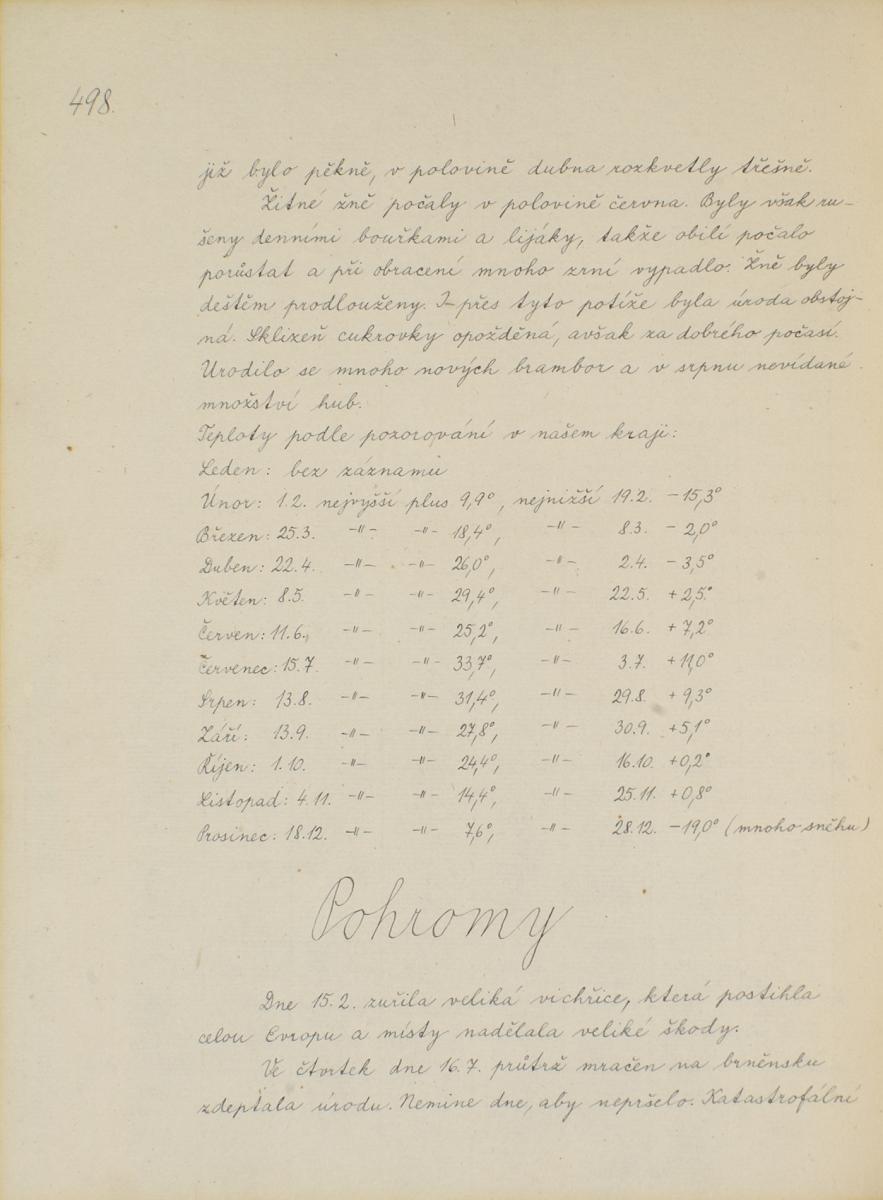 498.
již bylo pěkně, v polovině dubna rozkvetly třešně.
Žitné žně počaly v polovině června. Byly však ru-
šeny denními bouřkami a lijáky, takže obilí počalo
porůstat a při obracení mnoho zrní vypadlo. Žně byly
deštěm prodlouženy. I přes tyto potíže byla úroda obstoj-
ná. Sklizeň cukrovky opožděná, avšak za dobrého počasí.
Urodilo se mnoho nových brambor a v srpnu nevídané
množství hub.
Teploty podle pozorování v našem kraji:
Leden: bez záznamu
Únor: 1.2. nejvyšší plus 9,9°, nejnižší 19.2. -15,3°
Březen: 25.3. -"- -"- 18,4°, -"- 8.3. - 2,0°
Duben: 22.4. -"- -"- 26,0°, -"- 2.4. - 3,5°
Květen: 8.5. -"- -"- 29,4°, -"- 22.5. +2,5°
Červen: 11.6., -"- -"- 25,2°, -"- 16.6. +7,2°
Červenec: 15.7. -"- -"- 33,7°, -"- 3.7. +11,0°
Srpen: 13.8. -"- -"- 31,4°, -"- 29.8. + 9,3°
Září: 13.9. -"- -"- 27,8°, -"- 30.9. +5,1°
Říjen: 1.10. -"- -"- 24,4°, -"- 16.10. +0,2°
Listopad: 4.11. -"- -"- 14,4°, -"- 25.11. +0,8°
Prosinec: 18.12. -"- -"- 7,6°, -"- 28.12. -19,0° (mnoho sněhu)
Pohromy
Dne 15.2. zuřila veliká vichřice, která postihla
celou Evropu a místy nadělala veliké škody.
Ve čtvrtek dne 16.7. průtrž mračen na brněnsku
zdeptala úrodu. Nemine dne, aby nepršelo. Katastrofální